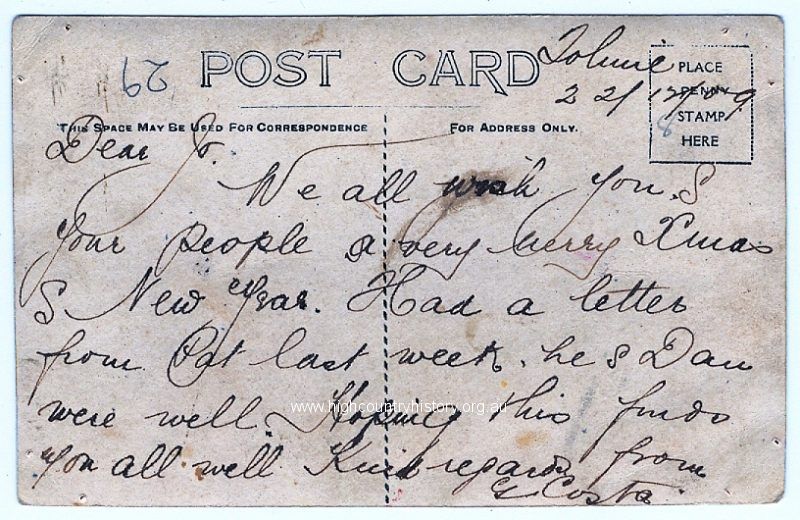 29
POST CARD
Tolmie
22/12/09
PLACE
PENNY
STAMP
HERE
8
THIS SPACE MAY BE USED FOR CORRESPONDENCE
FOR ADDRESS ONLY.
Dear Jo.
We all wish you &
your people a very merry Xmas
& New Year. Had a letter
from Pat last week. he & Dan
were well. Hoping this finds
you all well Kind regards from
Costa.
www.highcountryhistory.org.au